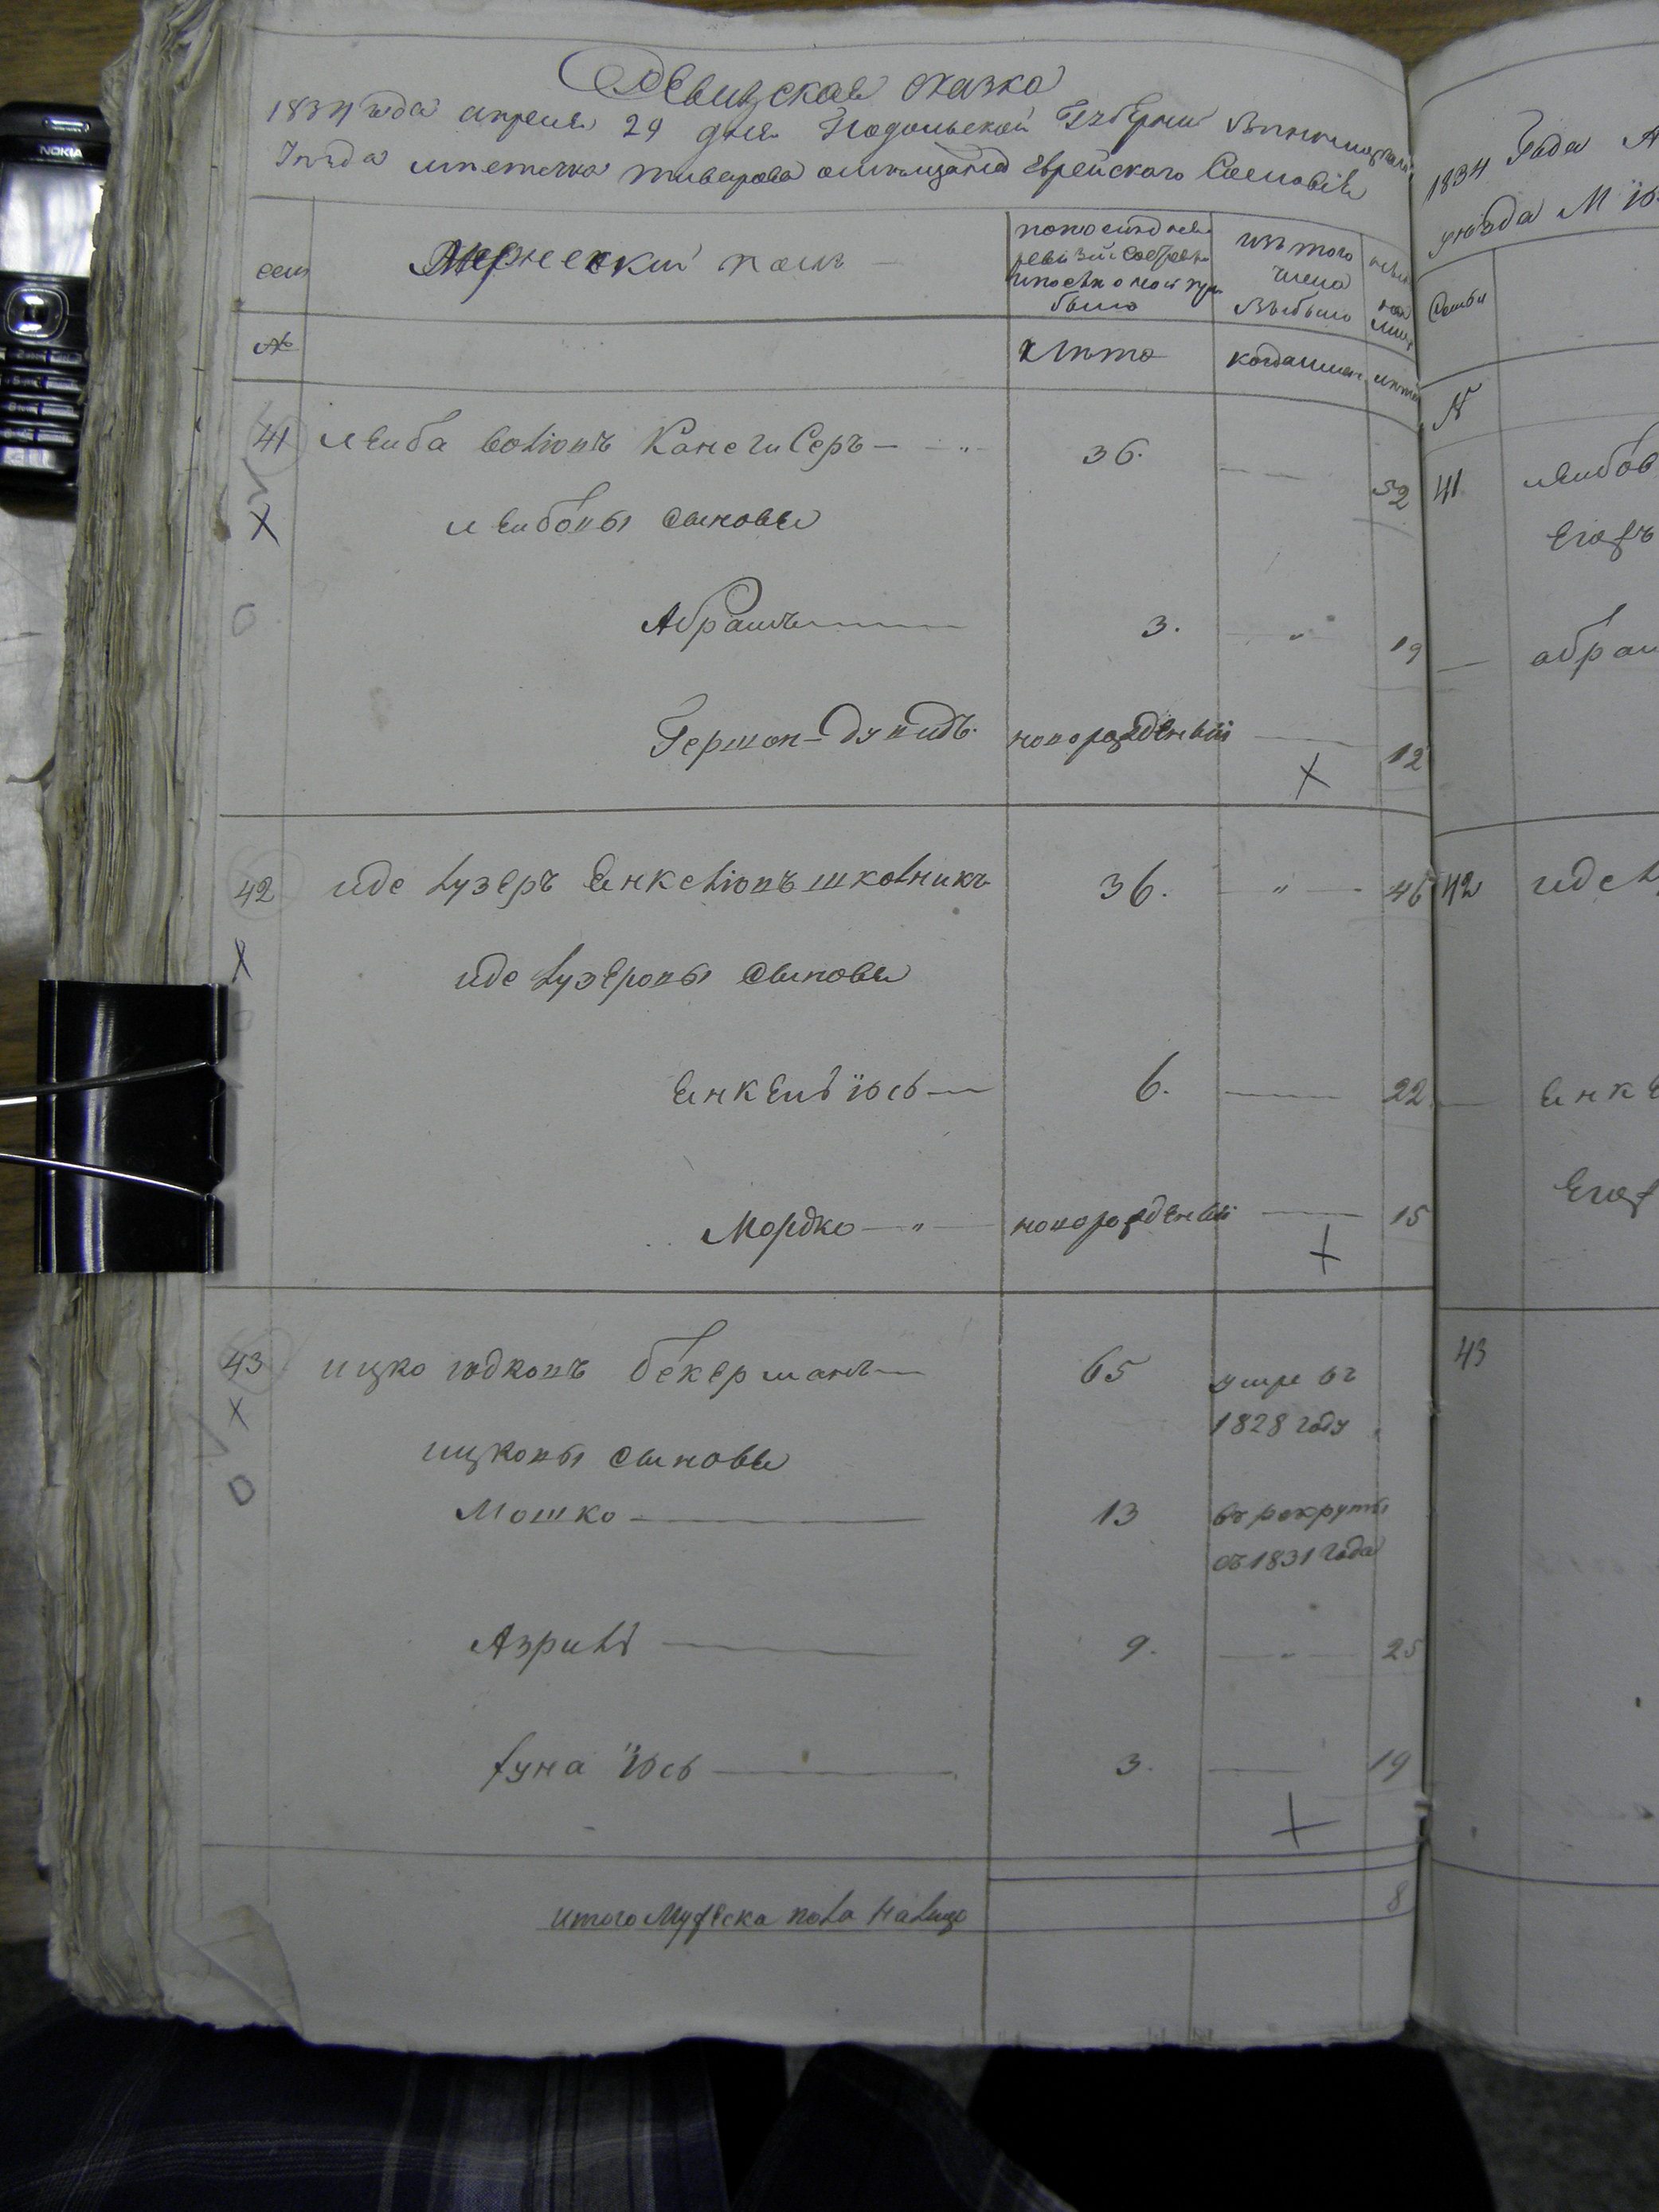 NOKIA
Ревизская сказка
1834 года апреля 29 дня Подольской Губернии Винницкаго
Уезда местечка Тиврова Еврейского Сословія
Мужеский полъ
было
изъ того
числа
выбыло
№
лета
когда именно
лета
41 Лейба Волковъ Канегисеръ 36. 52
Лейбовы сыновья
Абрамъ 3. " 19
Гершон-Дувидъ новорожденный 12
42 Иде Лузеръ Енкелiовъ школникъ 36. " 46
Иде Лузеровы сыновья
Енкель Iось 6. 22
Мордко " новорожденный 15
43 Ицко Юдковъ Бекерманъ 65 умре въ
1828 году
Ицковы сыновья
Мошко 13 въ рекруты
съ 1831 года
Азриль 9. " 25
Хуна Iось 3. 19
итого Мужеска пола на лицо 8
1834 Года
уезда М
Семьи
№
41 Лейбов
Его
абрам
42 Иде Л
Енке
Его
43